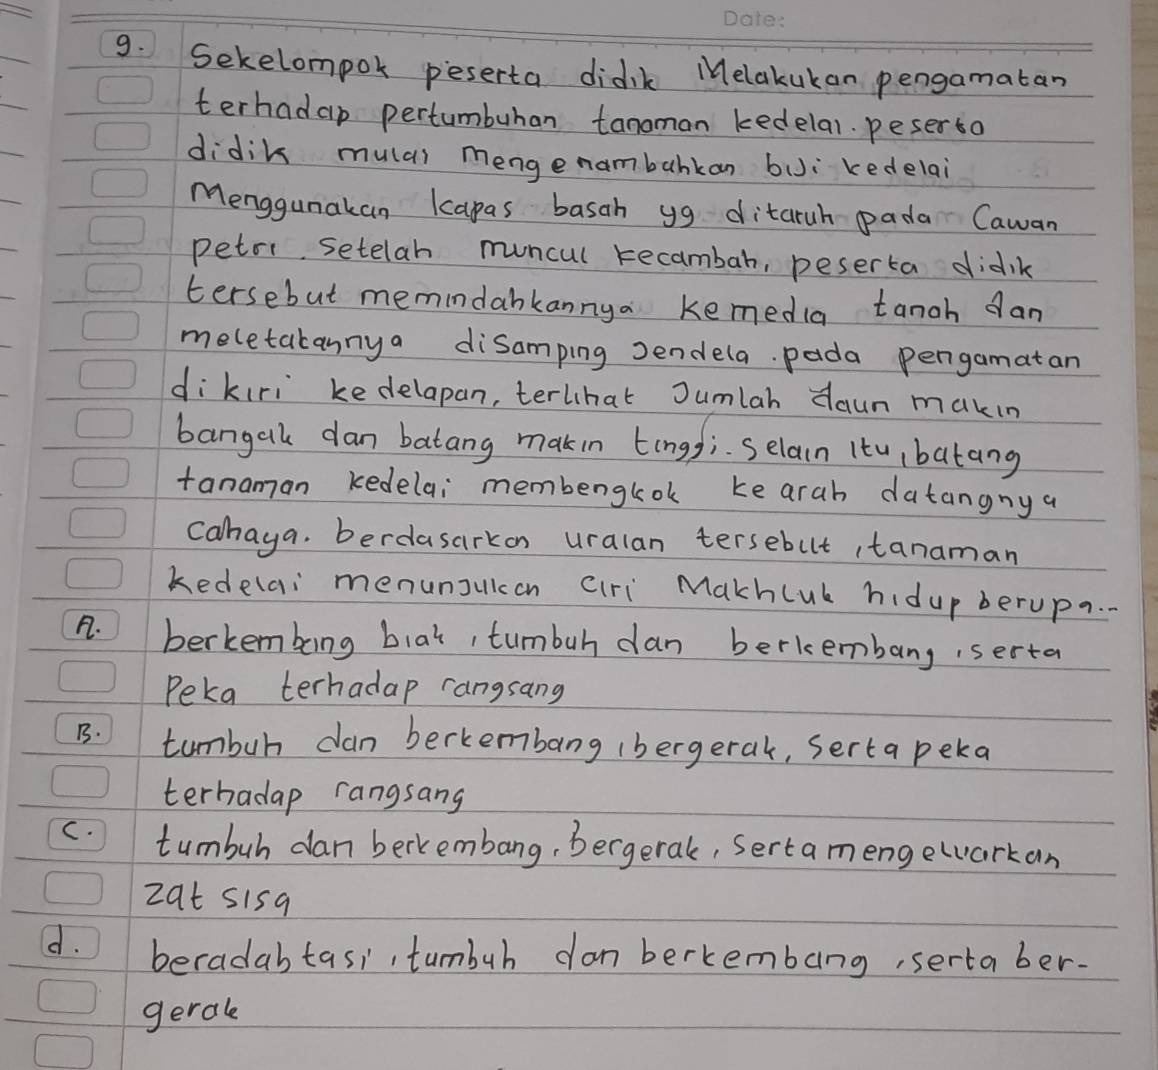 Date:
9. Sekelompok peserta didik Melakukan pengamatan
terhadap pertumbuhan tanaman kedelai. peserta
didik mulai mengenambahkan biji kedelai
Menggunakan kapas basah yg ditaruh pada Cawan
petri. setelah muncul kecambah, peserta didik
tersebut memindahkannya kemedia tanah dan
meletakannya disamping jendela. pada pengamatan
dikiri kedelapan, terlihat Jumlah daun makin
bangak dan batang makin tinggi. selain itu, batang
tanaman kedelai membengkok kearah datangnya
cahaya. berdasarkan uraian tersebut, tanaman
kedelai menunjukan ciri Makhluk hidup berupa...
A. berkembang biak, tumbuh dan berkembang, serta
Peka terhadap rangsang
B. tumbuh dan berkembang, bergerak, serta peka
terhadap rangsang
C. tumbuh dan berkembang, bergerak, serta mengeluarkan
zat sisa
d. beradabtasi, tumbuh dan berkembang, serta ber-
gerak